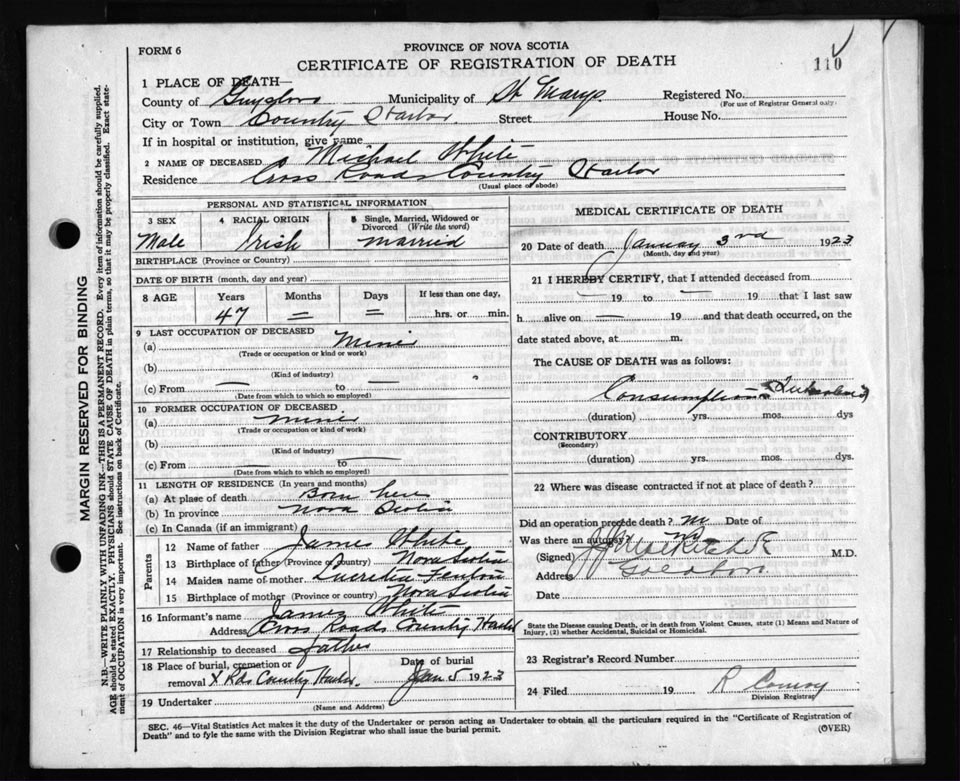 FORM 6
PROVINCE OF NOVA SCOTIA
CERTIFICATE OF REGISTRATION OF DEATH
110
1 PLACE OF DEATH—
County of Guysboro Municipality of St Marys Registered No.
(For use of Registrar General only.)
City or Town Country Harbor Street House No.
If in hospital or institution, give name
2 NAME OF DECEASED Michael White
Residence Cross Roads Country Harbor
(Usual place of abode)
PERSONAL AND STATISTICAL INFORMATION
3 SEX 4 RACIAL ORIGIN 5 Single, Married, Widowed or Divorced (Write the word)
Male Irish Married
BIRTHPLACE (Province or Country)
DATE OF BIRTH (month, day and year)
8 AGE Years Months Days If less than one day,
47 = = hrs. or min.
9 LAST OCCUPATION OF DECEASED
(a) Miner
(Trade or occupation or kind or work)
(b)
(Kind of industry)
(c) From — to —
(Date from which to which so employed)
10 FORMER OCCUPATION OF DECEASED
(a) Miner
(Trade or occupation or kind of work)
(b)
(Kind of industry)
(c) From — to —
(Date from which to which so employed)
11 LENGTH OF RESIDENCE (In years and months)
(a) At plase of death Born here
(b) In province Nova Scotia
(c) In Canada (if an immigrant)
Parents
12 Name of father James White
13 Birthplace of father (Province or Country) Nova Scotia
14 Maiden name of mother Lucretia Fenton
15 Birthplace of mother (Province or country) Nova Scotia
16 Informant's name James White
Address Cross Roads Country Harbor
17 Relationship to deceased father
18 Place of burial, cremation or removal X Rds Country Harbor Date of burial Jan 5 1923
19 Undertaker
(Name and Address)
MEDICAL CERTIFICATE OF DEATH
20 Date of death January 3rd 1923
(Month, day and year)
21 I HEREBY CERTIFY, that I attended deceased from
— 19 to — 19 that I last saw
h alive on — 19 and that death occurred, on the
date stated above, at m.
The CAUSE OF DEATH was as follows:
Consumption
(duration) yrs. mos. dys
CONTRIBUTORY
(Secondary)
(duration) yrs. mos. dys.
22 Where was disease contracted if not at place of death?
Did an operation precede death? no Date of
Was there an autopsy? no
(Signed) M.D.
Address Goldboro
Date
State the Disease causing Death, or in death from Violent Causes, state (1) Means and Nature of
Injury, (2) whether Accidental, Suicidal or Homicidal.
23 Registrar's Record Number
24 Filed 19 R Conroy
Division Registrar
SEC. 46—Vital Statistics Act makes it the duty of the Undertaker or person acting as Undertaker to obtain all the particulars required in the "Certificate of Registration of
Death" and to fyle the same with the Division Registrar who shall issue the burial permit.
(OVER)
MARGIN RESERVED FOR BINDING
N.B.—WRITE PLAINLY WITH UNFADING INK—THIS IS A PERMANENT RECORD. Every item of information should be carefully supplied.
AGE should be stated EXACTLY. PHYSICIANS should STATE CAUSE OF DEATH in plain terms, so that it may be properly classified. Exact statement
of OCCUPATION is very important. See instructions on back of Certificate.